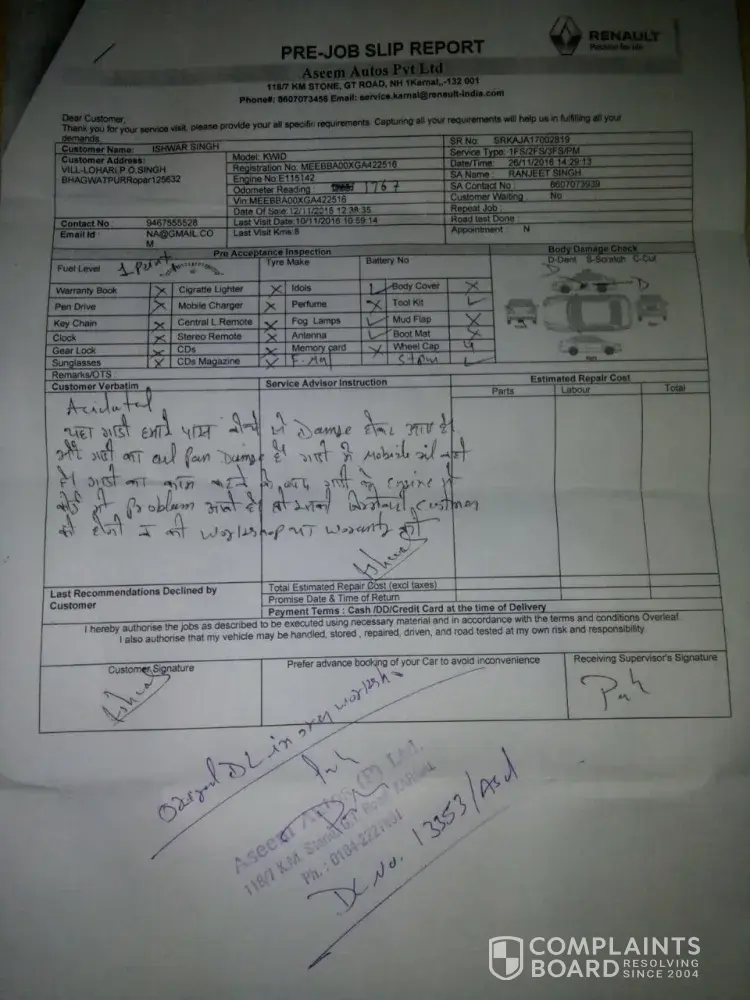 RENAULT
Passion for life
PRE-JOB SLIP REPORT
Aseem Autos Pvt Ltd
118/7 KM STONE, GT ROAD, NH 1Karnal,,-132 001
Phone#: 8607073456 Email: service.karnal@renault-india.com
Dear Customer,
Thank you for your service visit, please provide your all specific requirements. Capturing all your requirements will help us in fulfilling all your
demands.
Customer Name: ISHWAR SINGH
Customer Address:
VILL-LOHARI,P.O.SINGH
BHAGWATPURRopar125632
Contact No : 9467555528
Email Id : NA@GMAIL.CO
M
Model: KWID
Registration No: MEEBBA00XGA422516
Engine No:E115142
Odometer Reading : 1767
Vin:MEEBBA00XGA422516
Date Of Sale:12/11/2016 12:38:35
Last Visit Date:10/11/2016 10:59:14
Last Visit Kms:8
SR No: SRKAJA17002819
Service Type: 1FS/2FS/3FS/PM
Date/Time: 26/11/2016 14:29:13
SA Name : RANJEET SINGH
SA Contact No : 8607073939
Customer Waiting No
Repeat Job :
Road test Done :
Appointment : N
Pre Acceptance Inspection
Body Damage Check
Fuel Level 1 Point
Tyre Make
Battery No
D-Dent S-Scratch C-Cut
D
D
Warranty Book X Cigratte Lighter X Idols ✓ Body Cover X
Pen Drive X Mobile Charger X Perfume X Tool Kit ✓
Key Chain X Central L.Remote X Fog Lamps ✓ Mud Flap X
Clock X Stereo Remote X Antenna ✓ Boot Mat X
Gear Lock X CDs X Memory card X Wheel Cap 4
Sunglasses X CDs Magazine X F-Mat ✓
Remarks/OTS :
Customer Verbatim
Service Advisor Instruction
Estimated Repair Cost
Parts Labour Total
Acidatel
यहा गाडी हमारे पास नीचे से Damge होकर आई है
और गाडी का oil Pan Damge है गाडी में Mobile oil नही
है। गाडी का काम करने के बाद गाडी के engine में
कोई भी Problem आती है तो customer
की होगी न की workshop या waranty की
Last Recommendations Declined by
Customer
Total Estimated Repair Cost (excl taxes)
Promise Date & Time of Return
Payment Terms : Cash /DD/Credit Card at the time of Delivery
I hereby authorise the jobs as described to be executed using necessary material and in accordance with the terms and conditions Overleaf.
I also authorise that my vehicle may be handled, stored , repaired, driven, and road tested at my own risk and responsibility
Customer Signature
Prefer advance booking of your Car to avoid inconvenience
Receiving Supervisor's Signature
DL in over worksh
Aseem Autos (P) Ltd.
118/7 K.M. Stone G.T. Road KARNAL
Ph. : 0184-2227
DL No. 13353/Asd
COMPLAINTS
BOARD RESOLVING
SINCE 2004